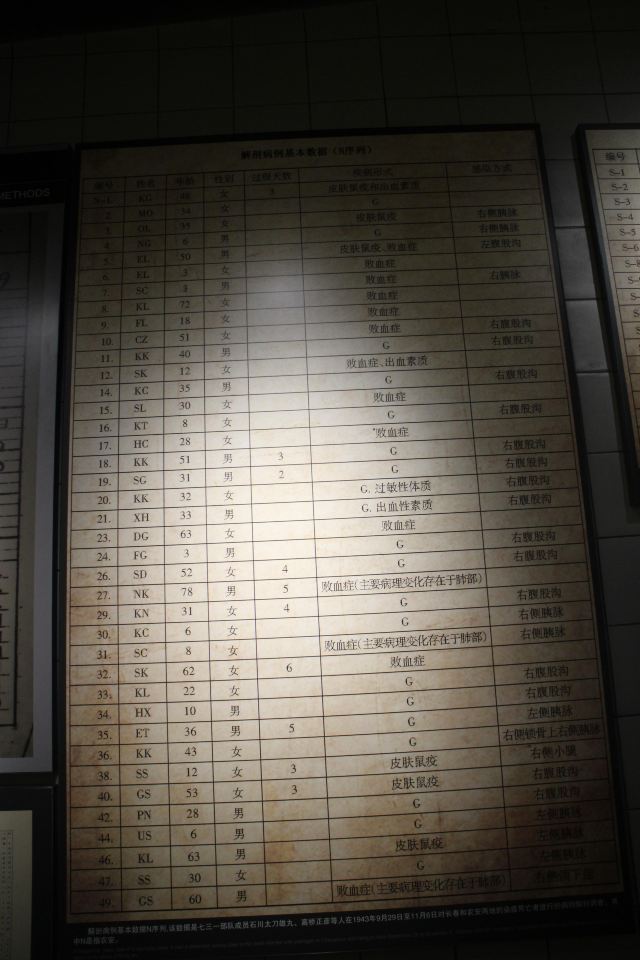 METHODS
解剖病例基本数据（N序列）
编号 姓名 年龄 性别 过程天数 疾病形式 感染方式
N-1. KG 48 女 3 皮肤鼠疫和出血素质
2. MO 34 女 G
3. OL 35 女 皮肤鼠疫 右侧胰脉
4. NG 6 男 G 右侧胰脉
5. EL 50 男 皮肤鼠疫、败血症 左腹股沟
6. EL 3 女 败血症
7. SC 3 男 败血症 右胰脉
8. KL 72 女 败血症
9. FL 18 女 败血症
10. CZ 51 女 败血症 右腹股沟
11. KK 40 男 G 右腹股沟
12. SK 12 女 败血症、出血素质
14. KC 35 男 G 右腹股沟
15. SL 30 女 败血症
16. KT 8 女 G 右腹股沟
17. HC 28 女 败血症
18. KK 51 男 3 G 右腹股沟
19. SG 31 男 2 G 右腹股沟
20. KK 32 女 G. 过敏性体质 右腹股沟
21. XH 33 男 G. 出血性素质 右腹股沟
23. DG 63 女 败血症
24. FG 3 男 G 右腹股沟
26. SD 52 女 4 G 右腹股沟
27. NK 78 男 5 败血症(主要病理变化存在于肺部)
29. KN 31 女 4 G 右腹股沟
30. KC 6 女 G 右侧胰脉
31. SC 8 女 败血症(主要病理变化存在于肺部) 右侧胰脉
32. SK 62 女 6 败血症
33. KL 22 女 G 右腹股沟
34. HX 10 男 G 右腹股沟
35. ET 36 男 5 G 左侧胰脉
36. KK 43 女 G 右侧锁骨上右侧胰脉
38. SS 12 女 3 皮肤鼠疫 右侧小腿
40. GS 53 女 3 皮肤鼠疫 右腹股沟
42. PN 28 男 G 右腹股沟
44. US 6 男 G 左侧胰脉
46. KL 63 男 皮肤鼠疫 左侧胰脉
47. SS 30 女 G 左侧胰脉
49. GS 60 男 败血症(主要病理变化存在于肺部)
解剖病例基本数据N序列,该数据是七三一部队成员石川太刀雄丸、高桥正彦等人在1943年9月29日至11月6日对长春和农安两地的染疫死亡者进行的病理解剖调查，其
中N是指农安。
编号
S-1
S-2
S-3
S-4
S-5
S-6